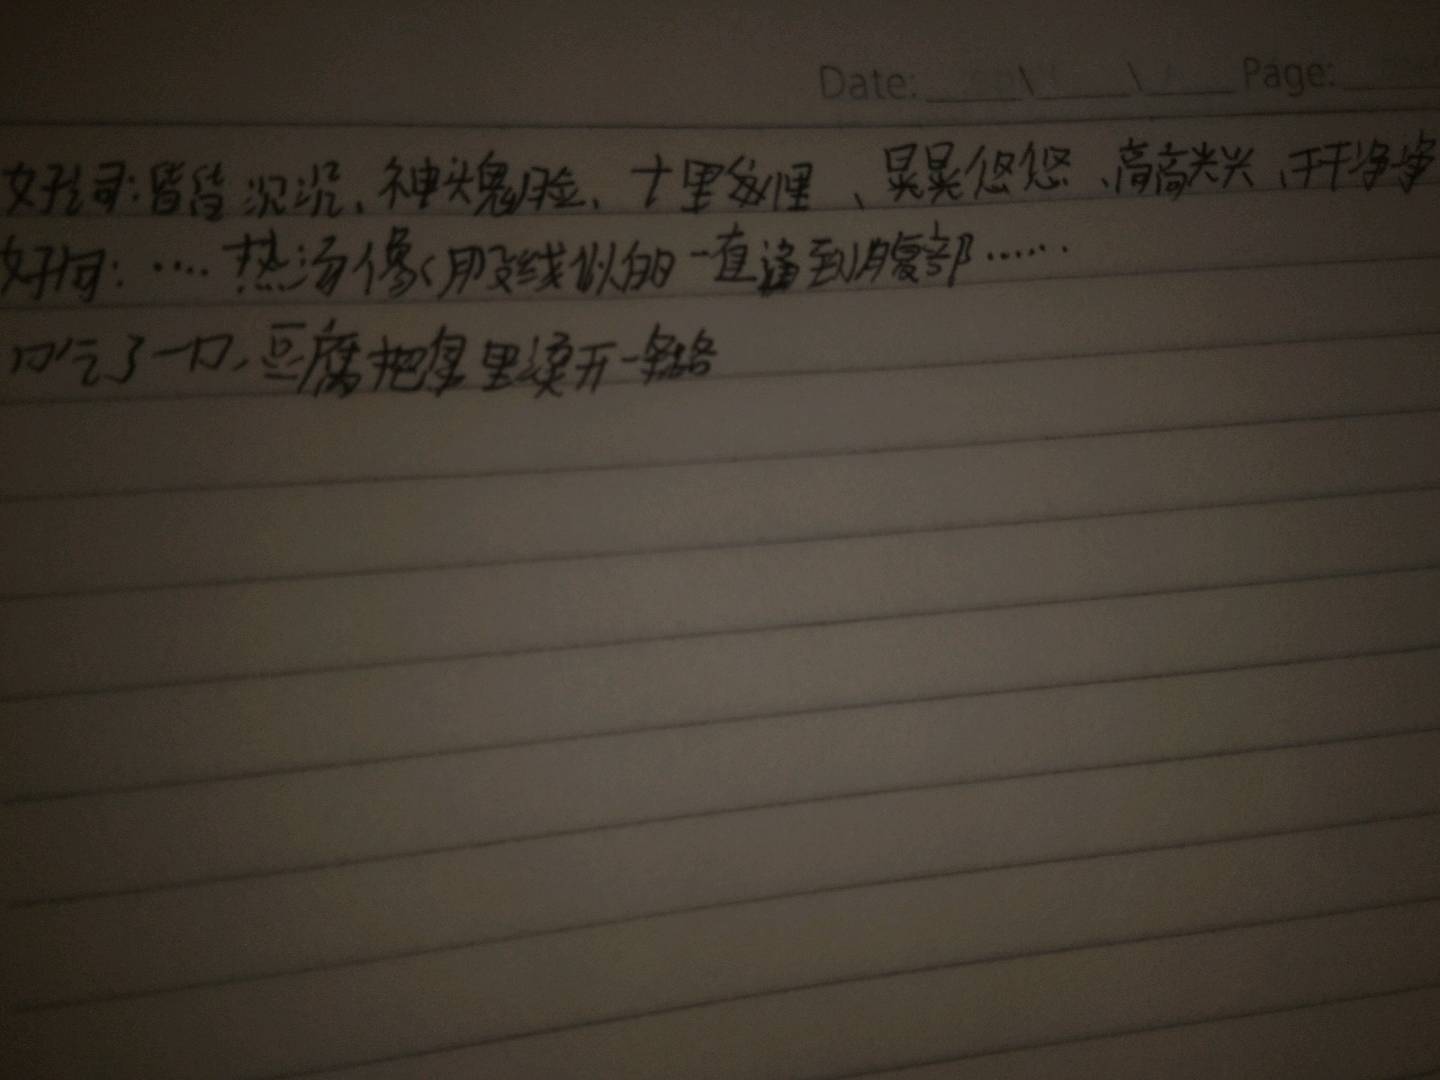 Date: Page:
好词:昏昏沉沉、神头鬼脸、十里、晃晃悠悠、高高兴兴、干干净净
好句:····热汤像股线似的一直通到腹部······
口吃了一口,豆腐把里烫开一条路